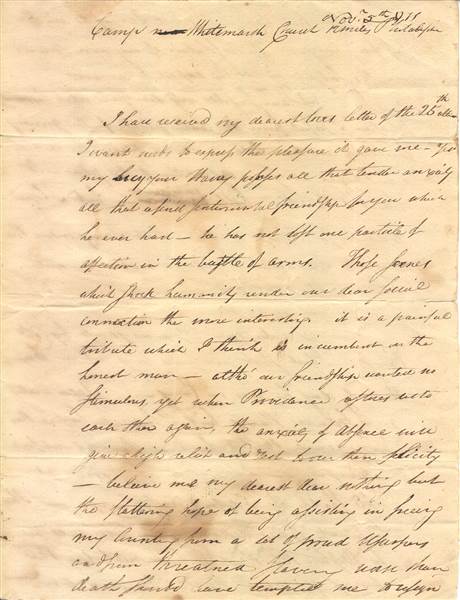 Camp Whitemarsh Church 12 miles Philadelphia
Nov. 5th 1777
I have received my dearest loves letter of the 25th ultmo
I want words to express the pleasure it gave me — Yes
my Lucy your Harry possess all that tender anxiety
all that sentimental friendship for you which
he ever had — he has not lost one particle of
affection in the bustle of arms. Those scenes
which shock humanity render our dear social
connection the more interesting. it is a painful
tribute which I think is incumbent on the
honest man — altho' our friendship wanted no
stimulous, yet when Providence restores us to
each other again, the anxiety of absence will
give a high relish and zest to our then felicity
— believe me my dearest dear nothing but
the flattering hope of being assisting in freeing
my Country from a set of proud Usurpers
and from threatned slavery worse than
death should have tempted me to resign